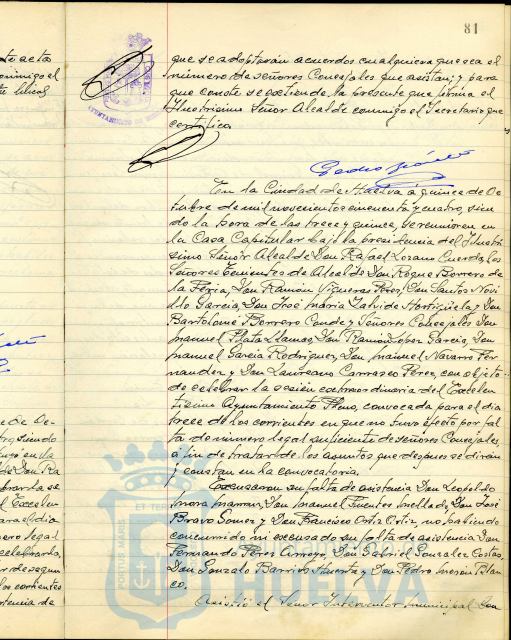 81
que se adoptarán acuerdos cualquiera que sea el
número de señores Concejales que asistan; y para
que conste se extiende la presente que firma el
Ilustrísimo Señor Alcalde conmigo el Secretario que
certifico.
En la Ciudad de Huelva a quince de Oc-
tubre de mil novecientos cincuenta y cuatro, sien-
do la hora de las trece y quince, se reunieron en
la Casa Capitular bajo la presidencia del Ilustrí-
simo Señor Alcalde Don Rafael Lozano Cuerda, los
Señores Tenientes de Alcalde Don Roque Borrero de
la Feria, Don Ramón Vigueras Pérez, Don Santos Novi-
llo García, Don José María Zalvide Hortigüela, y Don
Bartolomé Borrero Conde y Señores Concejales Don
Manuel Plata Llamas, Don Ramón López García, Don
Manuel García Rodríguez, Don Manuel Navarro Fer-
nandez y Don Laureano Carrasco Pérez, con objeto
de celebrar la sesión extraordinaria del Excelen-
tísimo Ayuntamiento Pleno, convocada para el día
trece de los corrientes en que no tuvo efecto por fal-
ta de número legal suficiente de señores Concejales,
a fin de tratar de los asuntos que después se dirán
y constan en la convocatoria.
Excusaron su falta de asistencia Don Leopoldo
Mora Don Manuel Fuentes Mellado, Don José
Bravo Gomez y Don Francisco Ortiz Ortiz, no habiendo
concurrido ni excusado su falta de asistencia Don
Fernando Pérez Arroyo, Don Gabriel González Costas,
Don Gonzalo Barrios Huerta y Don Pedro Morón Blan-
co.
Asistió el Señor Interventor Municipal Don
PORTUS MARIS ET TERRAE
HUELVA